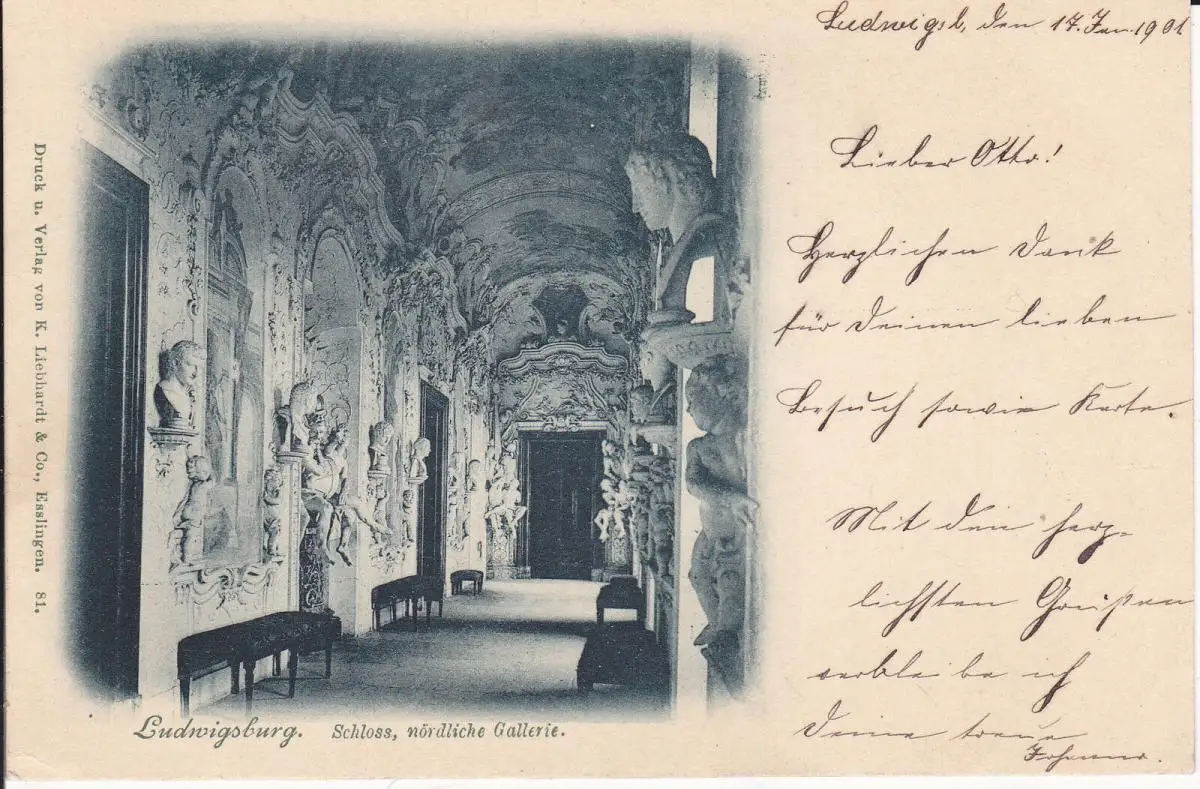 Ludwigsb, den 17. Jan. 1901
Lieber Otto!
Herzlichen Dank
für Deinen lieben
Besuch sowie Karte.
Mit den herz-
lichsten Grüßen
verbleibe ich
Deine treue
Johanna.
Druck u. Verlag von K. Liebhardt & Co., Esslingen. 81.
Ludwigsburg. Schloss, nördliche Gallerie.